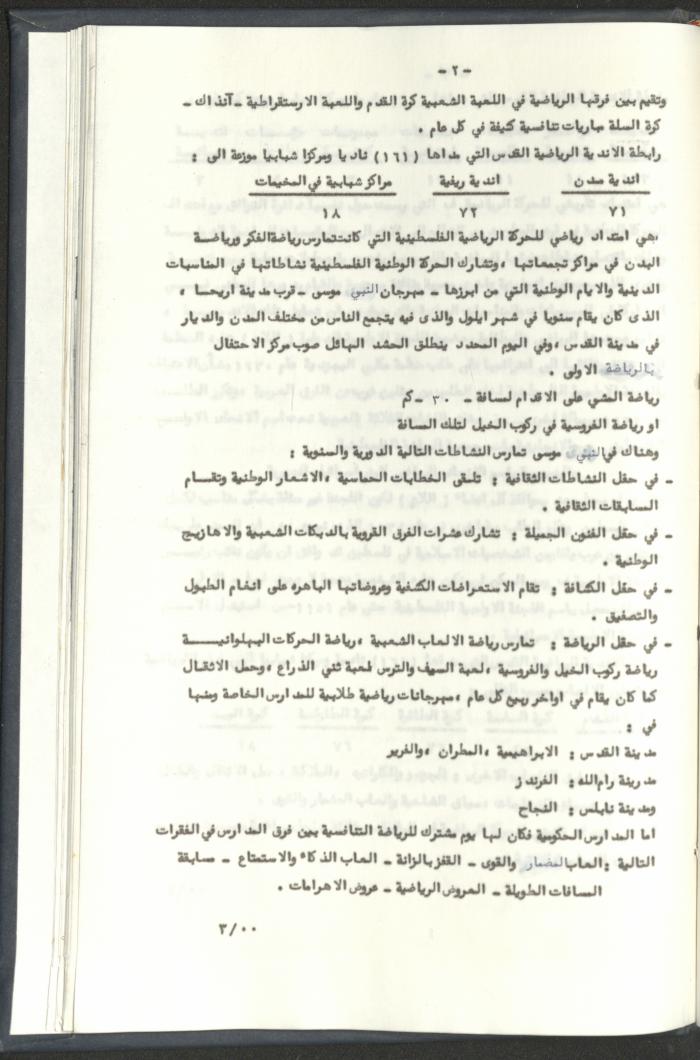 - ٢ -
وتقيم بين فرقها الرياضية في اللعبة الشعبية كرة القدم واللعبة الارستقراطية - آنذاك -
كرة السلة مباريات تنافسية كثيفة في كل عام .
رابطة الاندية الرياضية القدس التي مداها (١٦١) ناديا ومركزا شبابيا موزعة الى :
اندية مدن اندية ريفية مراكز شبابية في المخيمات
٧١ ٧٢ ١٨
هي امتداد رياضي للحركة الرياضية الفلسطينية التي كانت تمارس رياضة الفكر ورياضة
البدن في مراكز تجمعاتها ، وتشارك الحركة الوطنية الفلسطينية نشاطاتها في المناسبات
الدينية والايام الوطنية التي من ابرزها - مهرجان النبي موسى - قرب مدينة اريحا ،
الذى كان يقام سنويا في شهر ايلول والذى فيه يتجمع الناس من مختلف المدن والديار
في مدينة القدس ، وفي اليوم المحدد ينطلق الحشد الهائل صوب مركز الاحتفال
بالرياضة الاولى .
رياضة المشي على الاقدام لمسافة - ٣٠ - كم
او رياضة الفروسية في ركوب الخيل لتلك المسافة
وهناك في النبي موسى تمارس النشاطات التالية الدورية والسنوية :
- في حقل النشاطات الثقافية : تلقى الخطابات الحماسية ، الاشعار الوطنية وتقام
المسابقات الثقافية .
- في حقل الفنون الجميلة : تشارك عشرات الفرق القروية بالدبكات الشعبية والاهازيج
الوطنية .
- في حقل الكشافة : تقام الاستعراضات الكشفية وعروضاتها الباهره على انغام الطبول
والتصفيق .
- في حقل الرياضة : تمارس رياضة الالعاب الشعبية ، رياضة الحركات البهلوانية
رياضة ركوب الخيل والفروسية ، لعبة السيف والترس لعبة ثني الذراع ، وحمل الاثقال
كما كان يقام في اواخر ربيع كل عام ، مهرجانات رياضية طلابية للمدارس الخاصة ومنها
في :
مدينة القدس : الابراهيمية ، المطران ، والفرير
مدرينة رام الله : الفرندز
ومدينة نابلس : النجاح
اما المدارس الحكومية فكان لها يوم مشترك للرياضة التنافسية بين فرق المدارس في الفقرات
التالية : العاب المضمار والقوى - القفز بالزانة - العاب الذكاء والاستمتاع - مسابقة
المسافات الطويلة - العروض الرياضية - عروض الاهرامات .
٣/٠٠